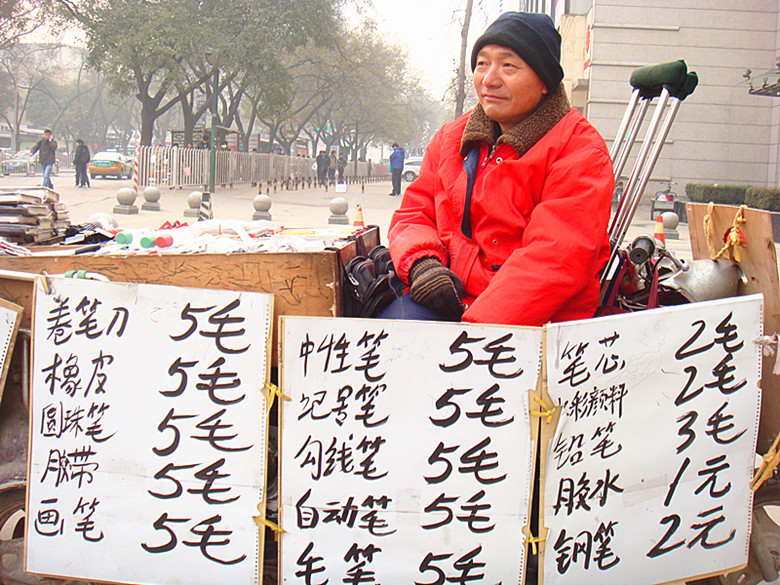 卷笔刀 5毛
橡皮 5毛
圆珠笔 5毛
胶带 5毛
画笔 5毛
中性笔 5毛
记号笔 5毛
勾线笔 5毛
自动笔 5毛
毛笔 5毛
笔芯 2毛
水彩颜料 2毛
铅笔 3毛
胶水 1元
钢笔 2元